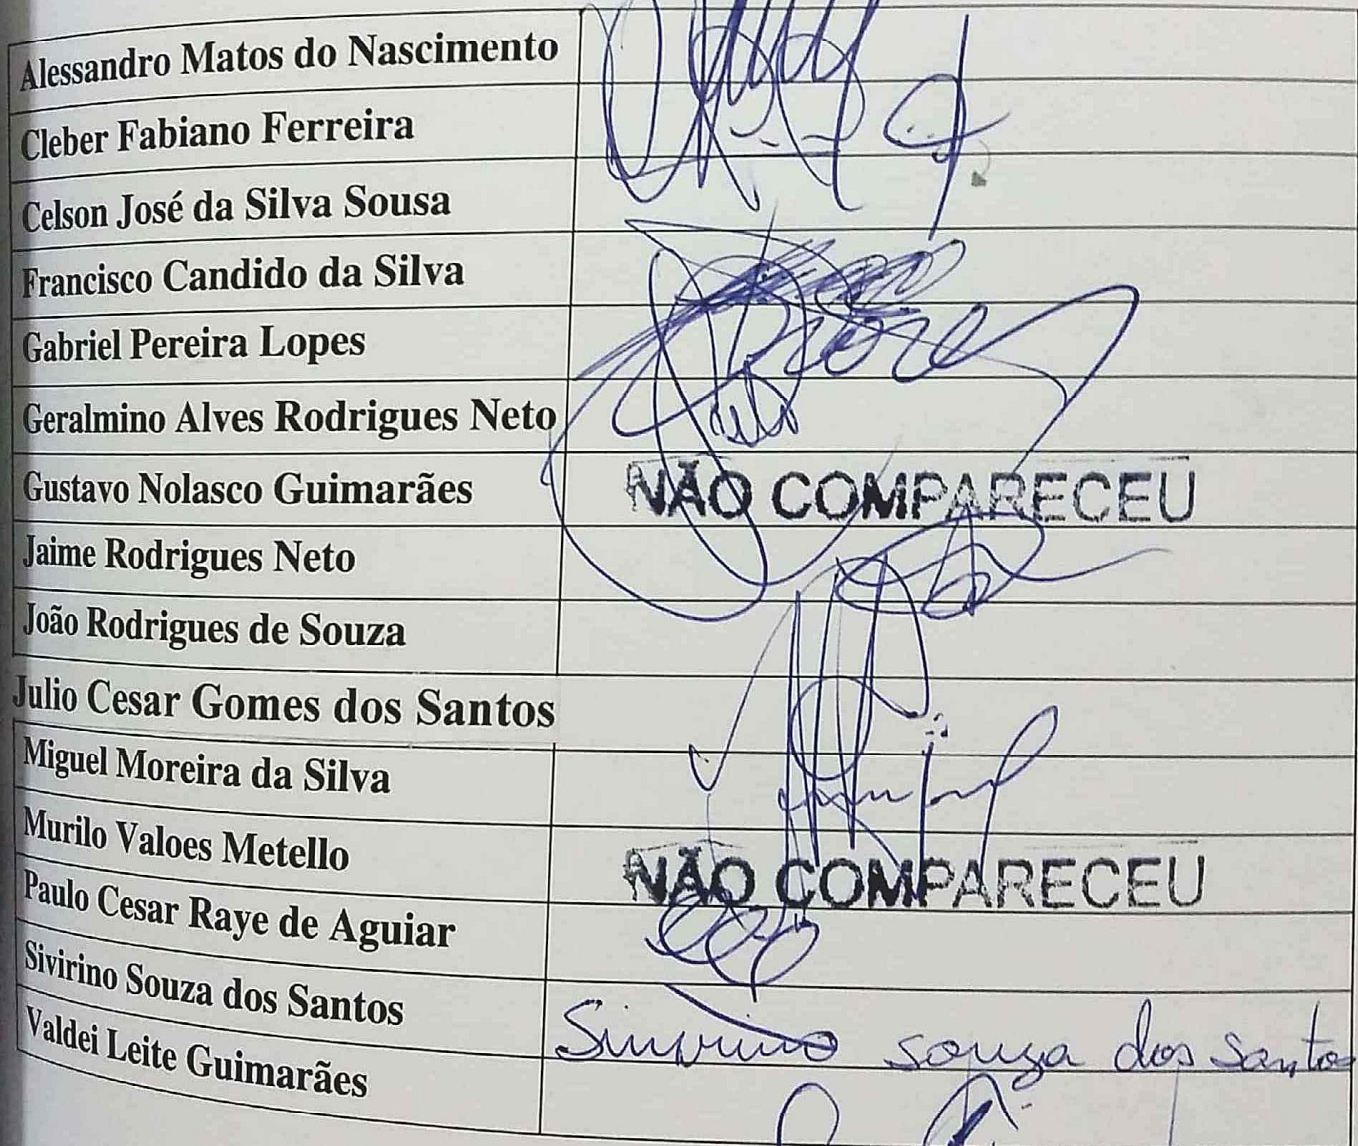 Alessandro Matos do Nascimento
Cleber Fabiano Ferreira
Celson José da Silva Sousa
Francisco Candido da Silva
Gabriel Pereira Lopes
Geralmino Alves Rodrigues Neto
Gustavo Nolasco Guimarães NÃO COMPARECEU
Jaime Rodrigues Neto
João Rodrigues de Souza
Julio Cesar Gomes dos Santos
Miguel Moreira da Silva
Murilo Valoes Metello NÃO COMPARECEU
Paulo Cesar Raye de Aguiar
Sivirino Souza dos Santos Sivirino souza dos Santos
Valdei Leite Guimarães